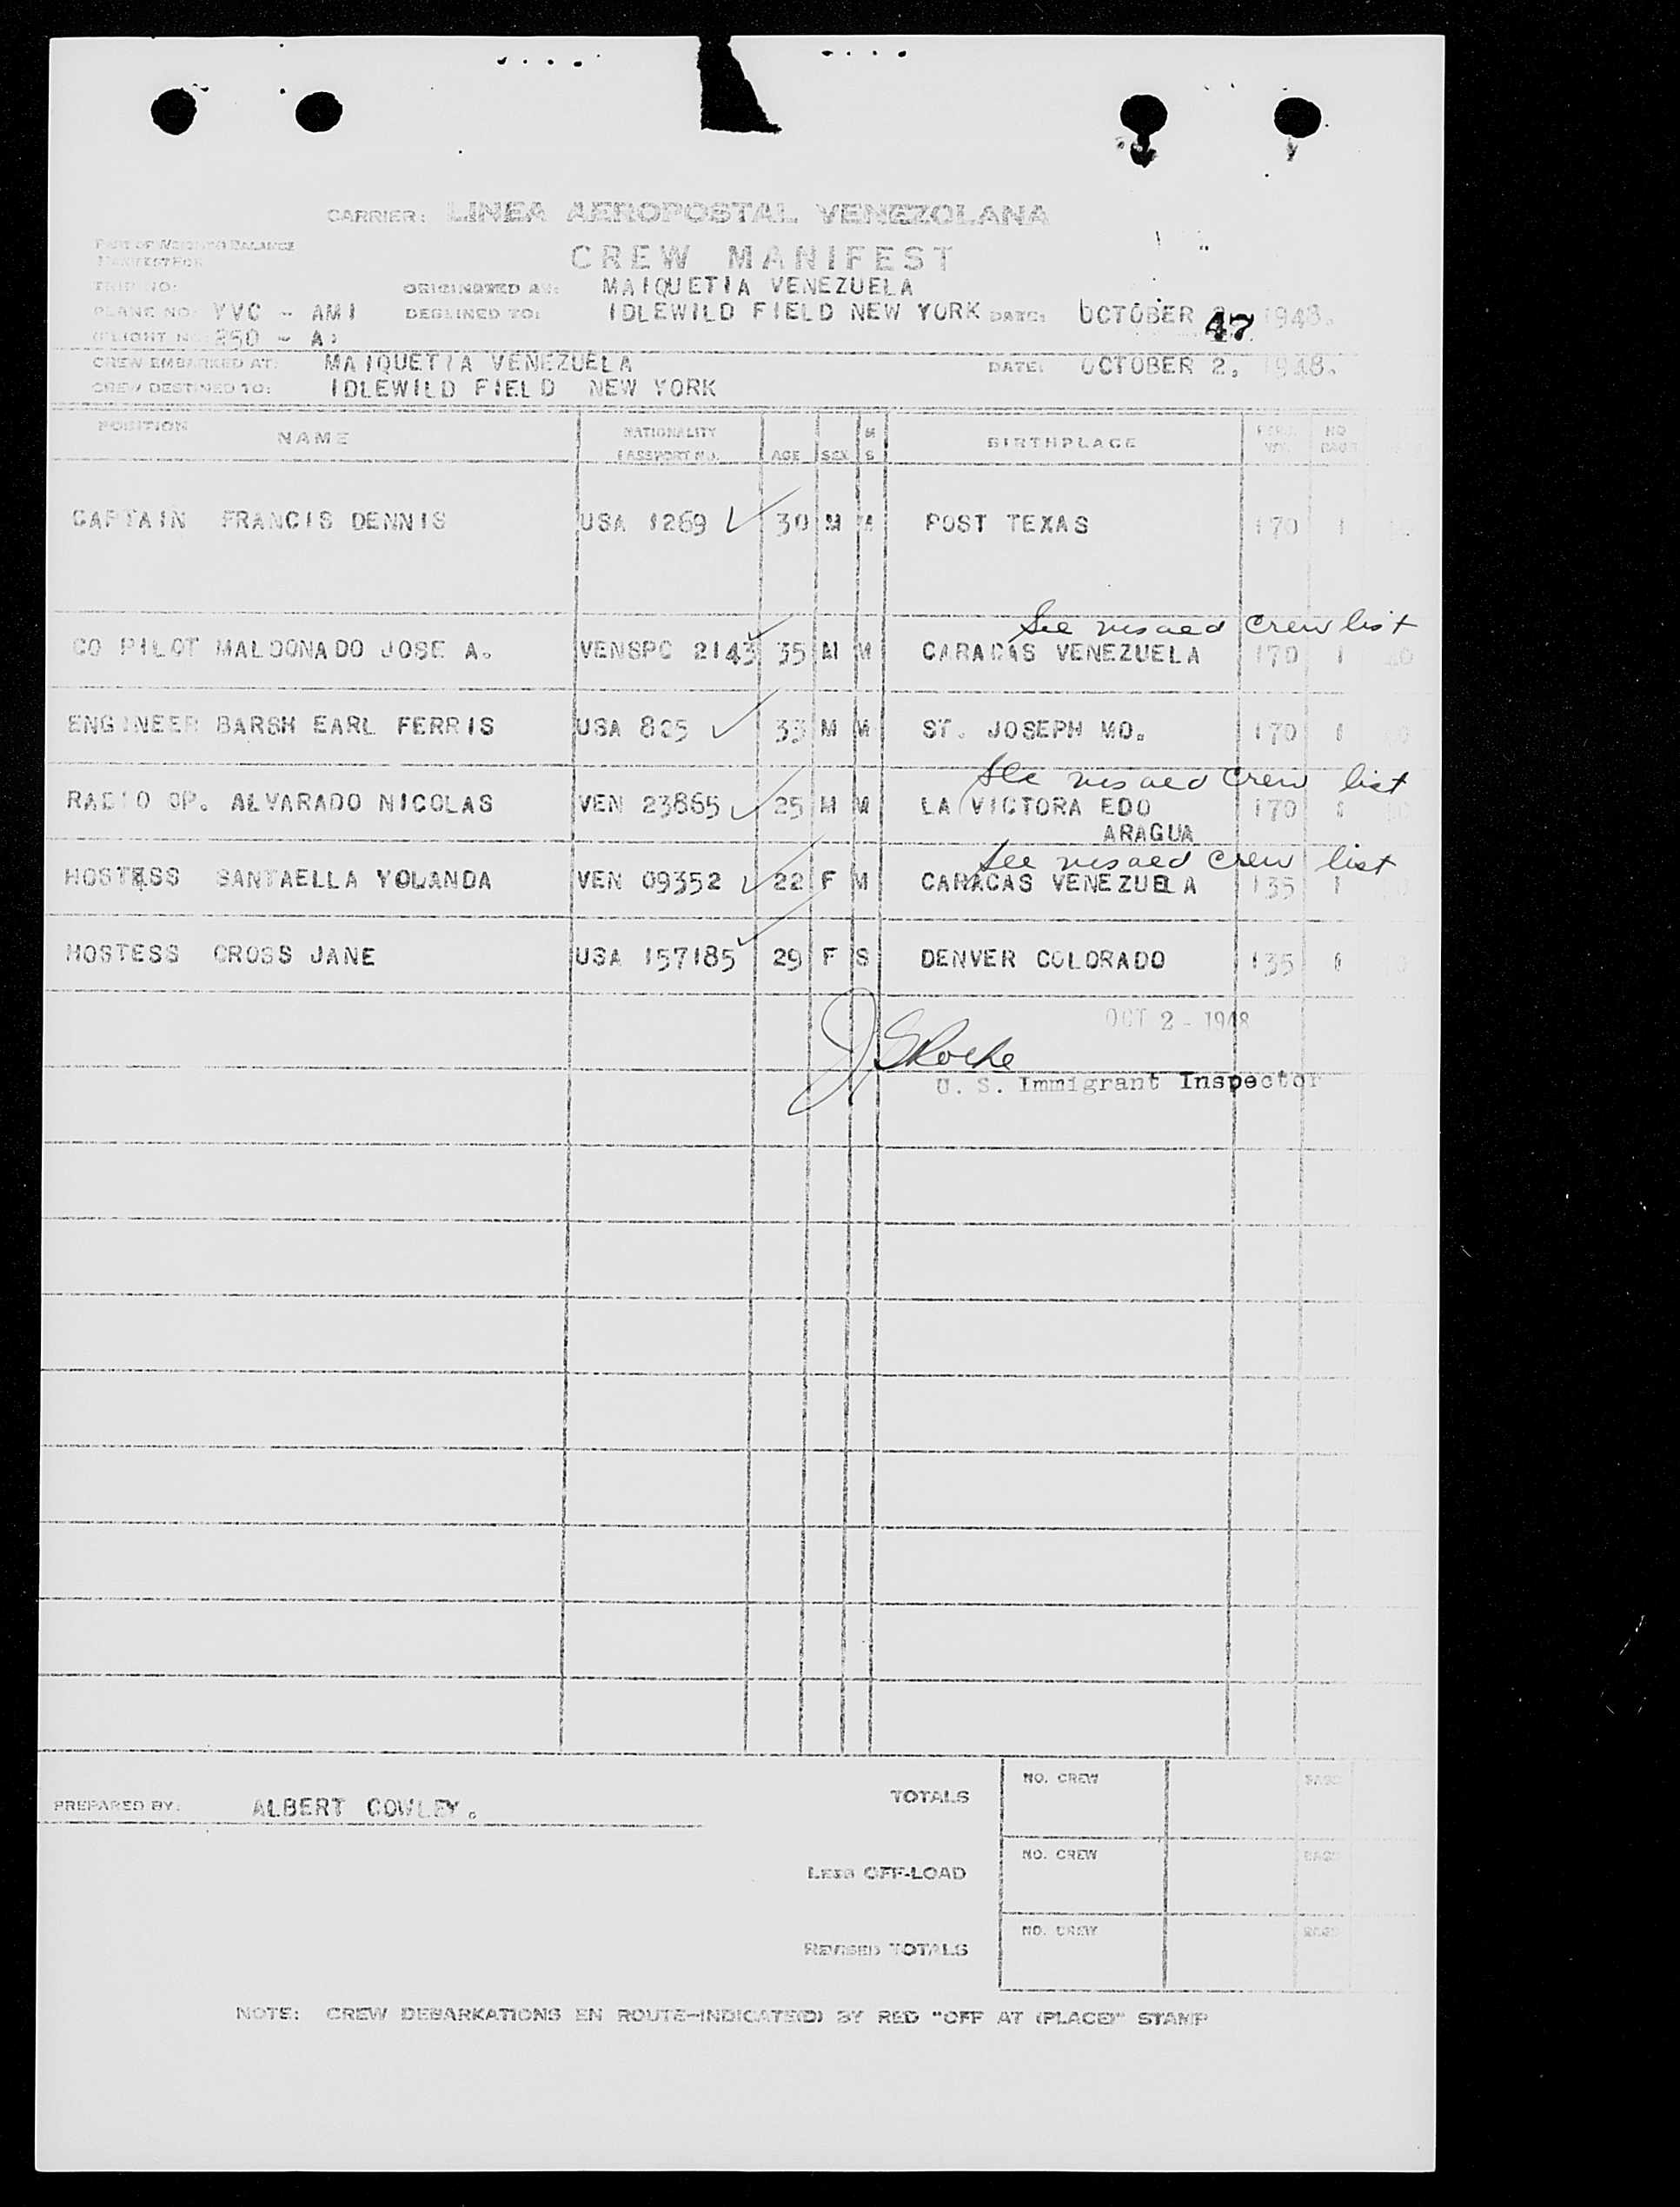 CARRIER: LINEA AEROPOSTAL VENEZOLANA
PART OF WEIGHT BALANCE
MANIFEST FOR
CREW MANIFEST
TRIP NO:
ORIGINATED AT: MAIQUETIA VENEZUELA
PLANE NO: YVC - AMI DESTINED TO: IDLEWILD FIELD NEW YORK DATE: OCTOBER 1948.
47
FLIGHT NO: 250 - A
CREW EMBARKED AT: MAIQUETIA VENEZUELA DATE: OCTOBER 2, 1948.
CREW DESTINED TO: IDLEWILD FIELD NEW YORK
POSITION NAME NATIONALITY PASSPORT NO. AGE SEX M S BIRTHPLACE PERS. WT. NO BAGS
CAPTAIN FRANCIS DENNIS USA 1269 30 M M POST TEXAS 170 1
See visaed crew list
CO PILOT MALDONADO JOSE A. VENSPC 2143 35 M M CARACAS VENEZUELA 170 1
ENGINEER BARSH EARL FERRIS USA 825 33 M M ST. JOSEPH MO. 170 1
See visaed crew list
RADIO OP. ALVARADO NICOLAS VEN 23865 25 M M LA VICTORA EDO 170 1
ARAGUA
See visaed crew list
HOSTESS SANTAELLA YOLANDA VEN 09352 22 F M CARACAS VENEZUELA 135 1
HOSTESS CROSS JANE USA 157185 29 F S DENVER COLORADO 135 1
OCT 2 - 1948
J S Roche
U. S. Immigrant Inspector
TOTALS NO. CREW BAGS
PREPARED BY: ALBERT COWLEY.
LESS OFF-LOAD NO. CREW BAGS
REVISED TOTALS NO. CREW BAGS
NOTE: CREW DEBARKATIONS EN ROUTE-INDICATE(D) BY RED "OFF AT (PLACE)" STAMP